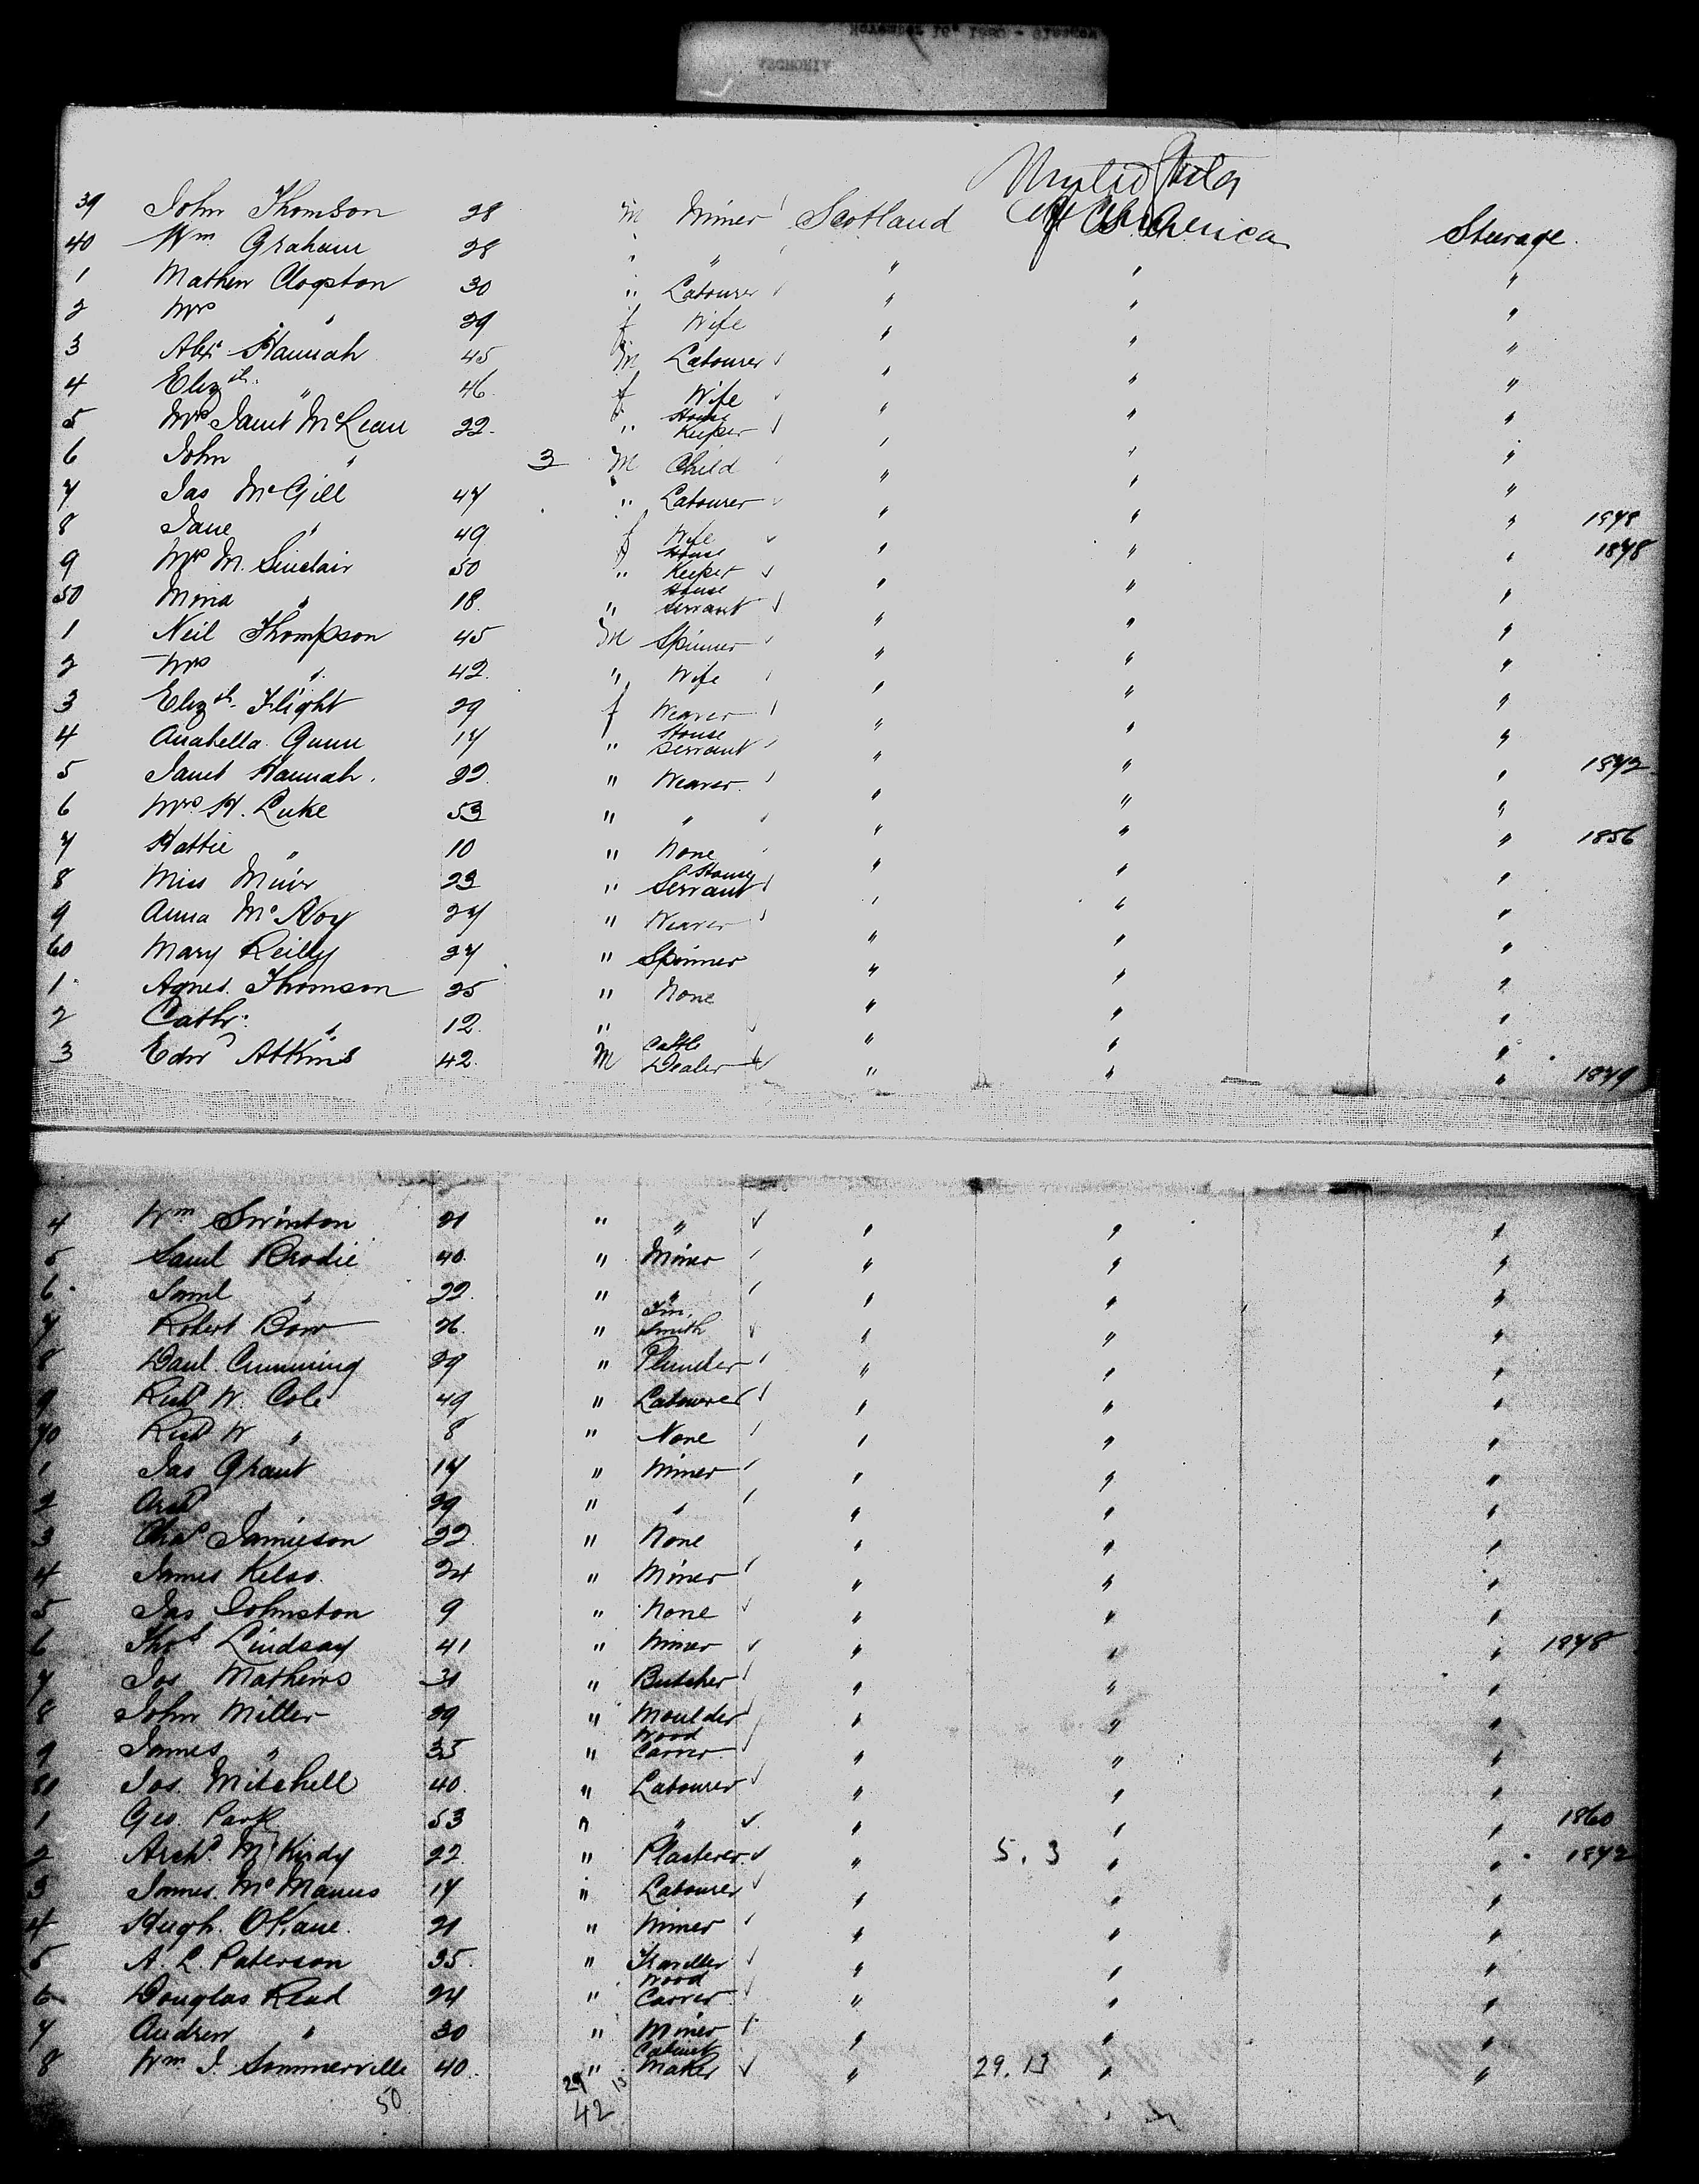 United States
39 John Thomson 28 M Miner Scotland Of America Steerage.
40 Wm Graham 28 " " " " "
1 Mathew Clogston 30 " Labourer " " "
2 Mrs " 29 f Wife " " "
3 Alexr Hannah 45 M Labourer " " "
4 Elizth " 46 f Wife " " "
5 Mrs Janet McLean 22 " House Keeper " " "
6 John " 3 M Child " " "
7 Jas McGill 47 " Labourer " " " 1878
8 Jane " 49 f Wife " " " 1878
9 Mrs M. Sinclair 50 " House Keeper " " "
50 Mina " 18 " House Servant " " "
1 Neil Thompson 45 M Spinner " " "
2 Mrs " 42 " Wife " " "
3 Elizth Flight 29 f Weaver " " "
4 Anabella Gunn 17 " House Servant " " "
5 Janet Hannah. 22 " Weaver " " " 1872
6 Mrs H. Luke 53 " " " " "
7 Hattie " 10 " None " " " 1856
8 Miss Muir 23 " House Servant " " "
9 Anna McAvoy 27 " Weaver " " "
60 Mary Reilly 27 " Spinner " " "
1 Agnes Thomson 25 " None " " "
2 Cathr. " 12 " " " " "
3 Edwd Atkins 42 M Cattle Dealer " " " 1879
4 Wm Swinton 21 " " " " "
5 Saml Brodie 40 " Miner " " "
6 Saml " 22 " " " " "
7 Robert Bow 26 " Tin Smith " " "
8 Danl. Cumming 29 " Plumber " " "
9 Richd W. Cole 49 " Labourer " " "
70 Richd W " 8 " None " " "
1 Jas Grant 17 " Miner " " "
2 Archd " 29 " " " " "
3 Chas Jamieson 22 " None " " "
4 James Kelso 24 " Miner " " "
5 Jas Johnston 9 " None " " "
6 Thos Lindsay 41 " Miner " " " 1878
7 Jos Mathews 31 " Butcher " " "
8 John Miller 29 " Moulder " " "
9 James " 35 " Wood Carver " " "
80 Jos. Mitchell 40 " Labourer " " "
1 Geo. Park 53 " " " " " 1860
2 Archd. McKindy 22 " Plasterer " 5.3 " " 1872
3 James McManus 17 " Labourer " " "
4 Hugh OKane 21 " Miner " " "
5 A. L. Paterson 35 " Traveller " " "
6 Douglas Read 24 " Wood Carver " " "
7 Andrew " 30 " Miner " " "
8 Wm J. Sommerville 40 " Cabinet Maker " 29.13 " "
50 29 13
42